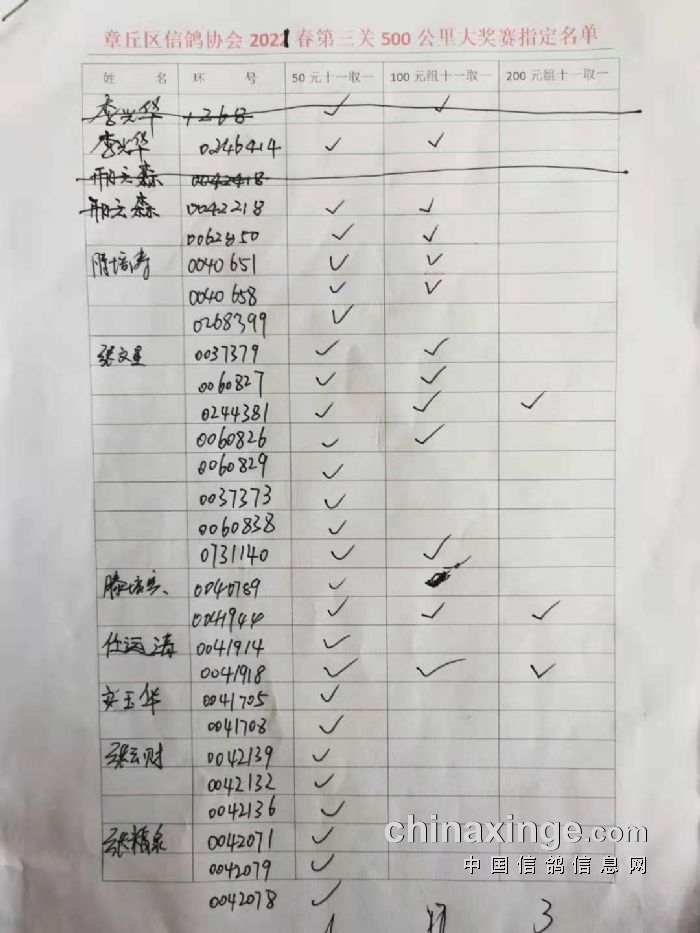 章丘区信鸽协会 2021 春第三关 500 公里大奖赛指定名单
姓 名 环 号 50 元十一取一 100 元组十一取一 200 元组十一取一
李兴华 1268 ✓ ✓
李兴华 0246414 ✓ ✓
森 0042418
森 0042218 ✓ ✓
0062850 ✓ ✓
滕培涛 0040651 ✓ ✓
0040658 ✓ ✓
0268399 ✓
张文星 0037379 ✓ ✓
0060827 ✓ ✓
0244381 ✓ ✓ ✓
0060826 ✓ ✓
0060829 ✓
0037373 ✓
0060838 ✓
0731140 ✓ ✓
滕培 0040789 ✓
0041944 ✓ ✓ ✓
任运涛 0041914 ✓
0041918 ✓ ✓ ✓
安玉华 0041705 ✓
0041708 ✓
张云财 0042139 ✓
0042132 ✓
0042136 ✓
张精泉 0042071 ✓
0042079 ✓
0042078 ✓
3
chinaxinge.com
中国信鸽信息网